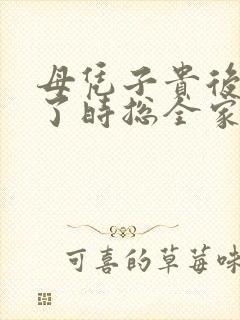 母凭子貴後
了時總全家
可喜的草莓味